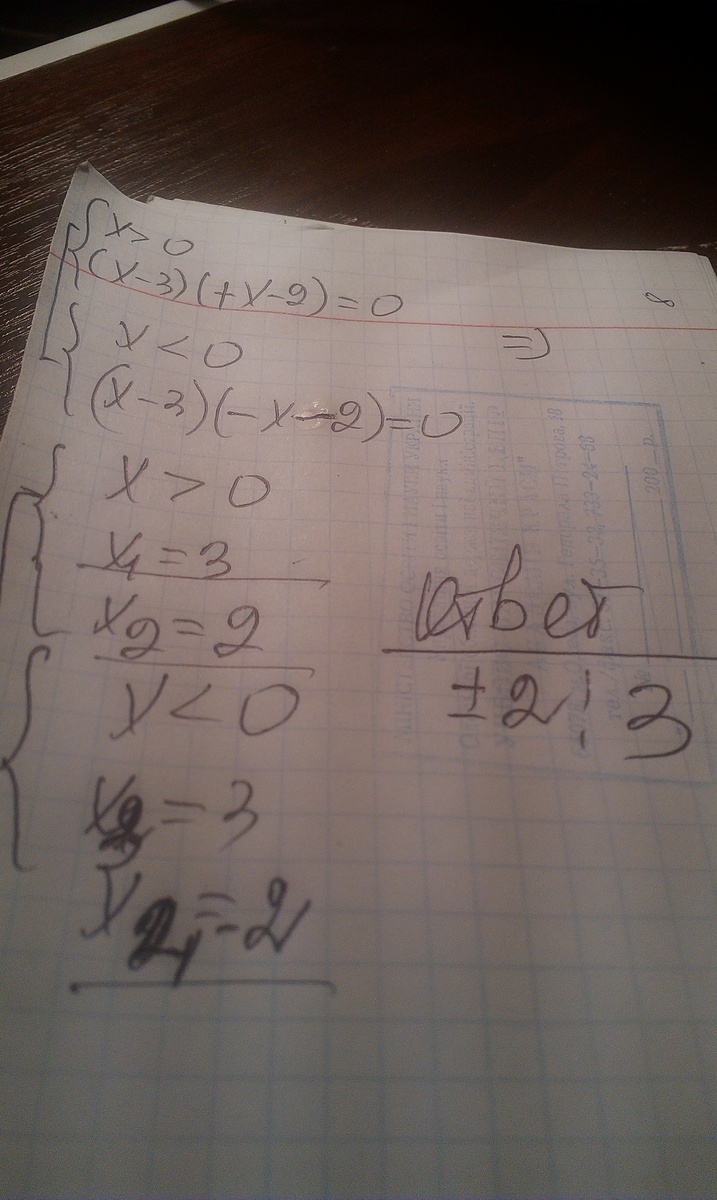 x > 0
(x-3)(+x-2)=0
8
x < 0
=>
(x-3)(-x-2)=0
x > 0
x₁ = 3
x₂ = 2
x < 0
x₃ = 3
x₄ = -2
Ответ
±2; 3